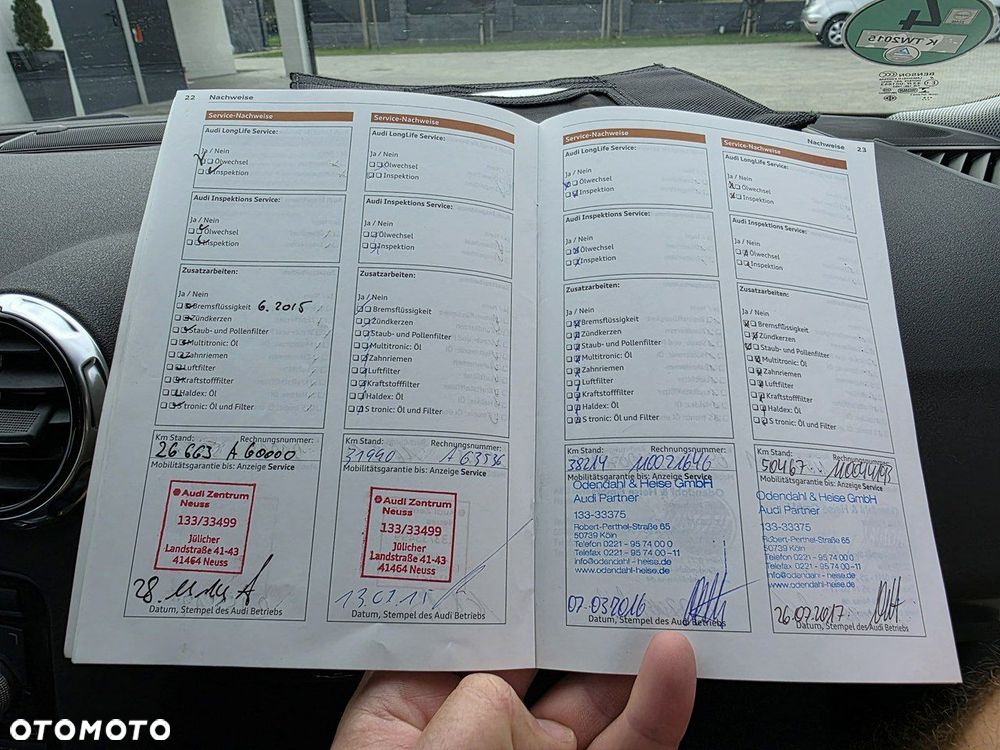 4
K TW2015
BENSON
22 Nachweise
Service-Nachweise
Audi LongLife Service:
Ja / Nein
Ölwechsel
Inspektion
Audi Inspektions Service:
Ja / Nein
Ölwechsel
Inspektion
Zusatzarbeiten:
Ja / Nein
Bremsflüssigkeit 6.2015
Zündkerzen
Staub- und Pollenfilter
Multitronic: Öl
Zahnriemen
Luftfilter
Kraftstofffilter
Haldex: Öl
S tronic: Öl und Filter
Km Stand: Rechnungsnummer:
26663 A 60000
Mobilitätsgarantie bis: Anzeige Service
Audi Zentrum
Neuss
133/33499
Jülicher
Landstraße 41-43
41464 Neuss
Datum, Stempel des Audi Betriebs
Service-Nachweise
Audi LongLife Service:
Ja / Nein
Ölwechsel
Inspektion
Audi Inspektions Service:
Ja / Nein
Ölwechsel
Inspektion
Zusatzarbeiten:
Ja / Nein
Bremsflüssigkeit
Zündkerzen
Staub- und Pollenfilter
Multitronic: Öl
Zahnriemen
Luftfilter
Kraftstofffilter
Haldex: Öl
S tronic: Öl und Filter
Km Stand: Rechnungsnummer:
31940 A 63536
Mobilitätsgarantie bis: Anzeige Service
Audi Zentrum
Neuss
133/33499
Jülicher
Landstraße 41-43
41464 Neuss
Datum, Stempel des Audi Betriebs
Service-Nachweise
Audi LongLife Service:
Ja / Nein
Ölwechsel
Inspektion
Audi Inspektions Service:
Ja / Nein
Ölwechsel
Inspektion
Zusatzarbeiten:
Ja / Nein
Bremsflüssigkeit
Zündkerzen
Staub- und Pollenfilter
Multitronic: Öl
Zahnriemen
Luftfilter
Kraftstofffilter
Haldex: Öl
S tronic: Öl und Filter
Km Stand: Rechnungsnummer:
38214 110021646
Mobilitätsgarantie bis: Anzeige Service
Odendahl & Heise GmbH
Audi Partner
133-33375
Robert-Perthel-Straße 65
50739 Köln
Telefon 0221 - 95 74 00 0
Telefax 0221 - 95 74 00 -11
info@odendahl - heise.de
www.odendahl-heise.de
07.03.2016
Datum, Stempel des Audi Betriebs
Nachweise 23
Service-Nachweise
Audi LongLife Service:
Ja / Nein
Ölwechsel
Inspektion
Audi Inspektions Service:
Ja / Nein
Ölwechsel
Inspektion
Zusatzarbeiten:
Ja / Nein
Bremsflüssigkeit
Zündkerzen
Staub- und Pollenfilter
Multitronic: Öl
Zahnriemen
Luftfilter
Kraftstofffilter
Haldex: Öl
S tronic: Öl und Filter
Km Stand: Rechnungsnummer:
50467
Mobilitätsgarantie bis: Anzeige Service
Odendahl & Heise GmbH
Audi Partner
133-33375
Robert-Perthel-Straße 65
50739 Köln
Telefon 0221 - 95 74 00 0
Telefax 0221 - 95 74 00 -11
info@odendahl - heise.de
www.odendahl-heise.de
26.07.2017
Datum, Stempel des Audi Betriebs
OTOMOTO